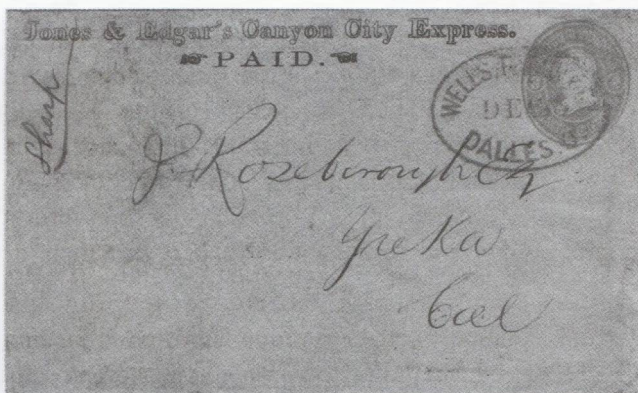 Jones & Edgar's Canyon City Express.
PAID.
Sharp
WELLS, F
DE
DALLES
J. Roseborough Esq
Yreka
Cal